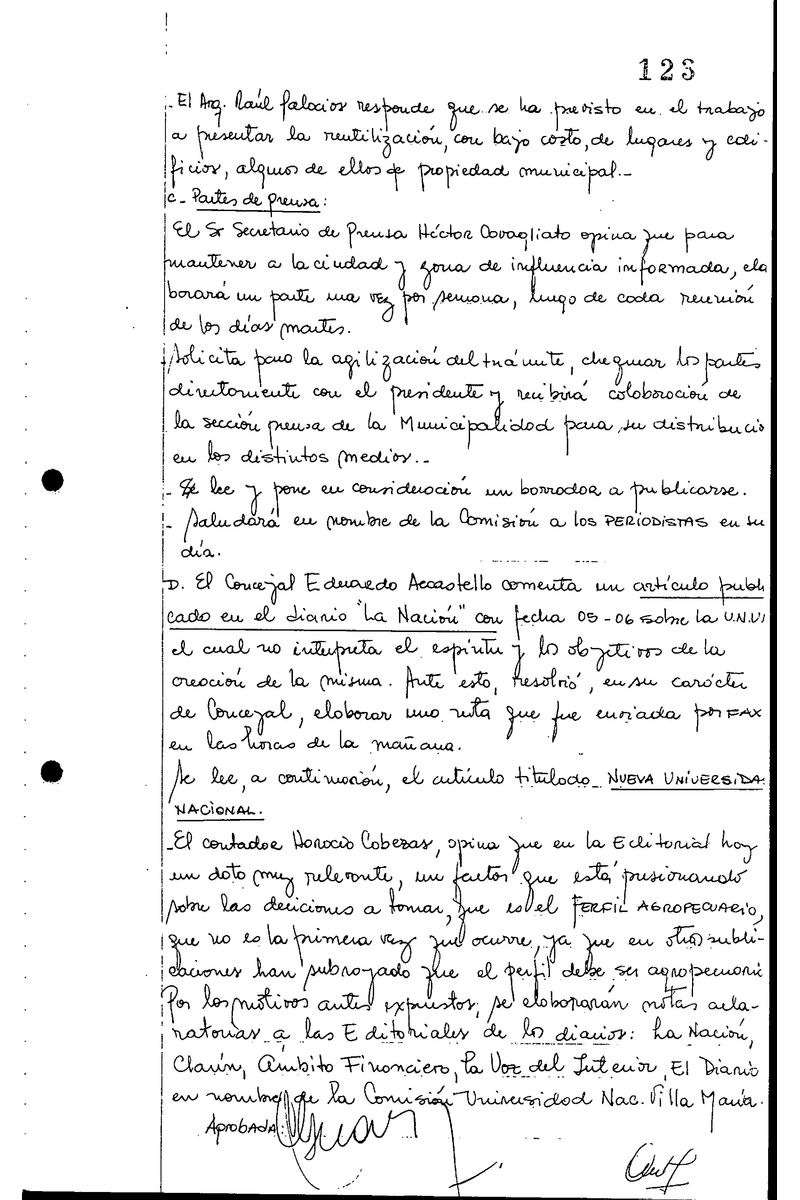 123
- El Arq. Raúl Palacios responde que se ha previsto en el trabajo
a presentar la reutilización, con bajo costo, de lugares y edi-
ficios, algunos de ellos de propiedad municipal.-
C- Partes de prensa:
El Sr Secretario de Prensa Héctor Cavagliato opina que para
mantener a la ciudad y zona de influencia informada, ela
borará un parte una vez por semana, luego de cada reunión
de los días martes.
Solicita para la agilización del trámite, chequear los partes
directamente con el presidente y recibirá colaboración de
la sección prensa de la Municipalidad para su distribució
en los distintos medios.-
- Se lee y pone en consideración un borrador a publicarse.
- Saludará en nombre de la Comisión a los PERIODISTAS en su
día.
D. El Concejal Eduardo Accastello comenta un artículo publi
cado en el diario "La Nación" con fecha 05-06 sobre la U.N.VI
el cual no interpreta el espíritu y los objetivos de la
creación de la misma. Ante esto, resolvió, en su carácter
de Concejal, elaborar una nota que fue enviada por FAX
en las horas de la mañana.
Se lee, a continuación, el artículo titulado NUEVA UNIVERSIDA
NACIONAL.
- El contador Horacio Cabezas, opina que en la Editorial hay
un dato muy relevante, un factor que está presionando
sobre las deciciones a tomar, que es el PERFIL AGROPECUARIO,
que no es la primera vez que ocurre, ya que en otras publi-
caciones han subrayado que el perfil debe ser agropecuario
Por los motivos antes expuestos, se elaborarán notas acla-
ratorias a las Editoriales de los diarios: La Nación,
Clarín, Ámbito Financiero, La Voz del Interior, El Diario
en nombre de la Comisión Universidad Nac. Villa María.
Aprobada: